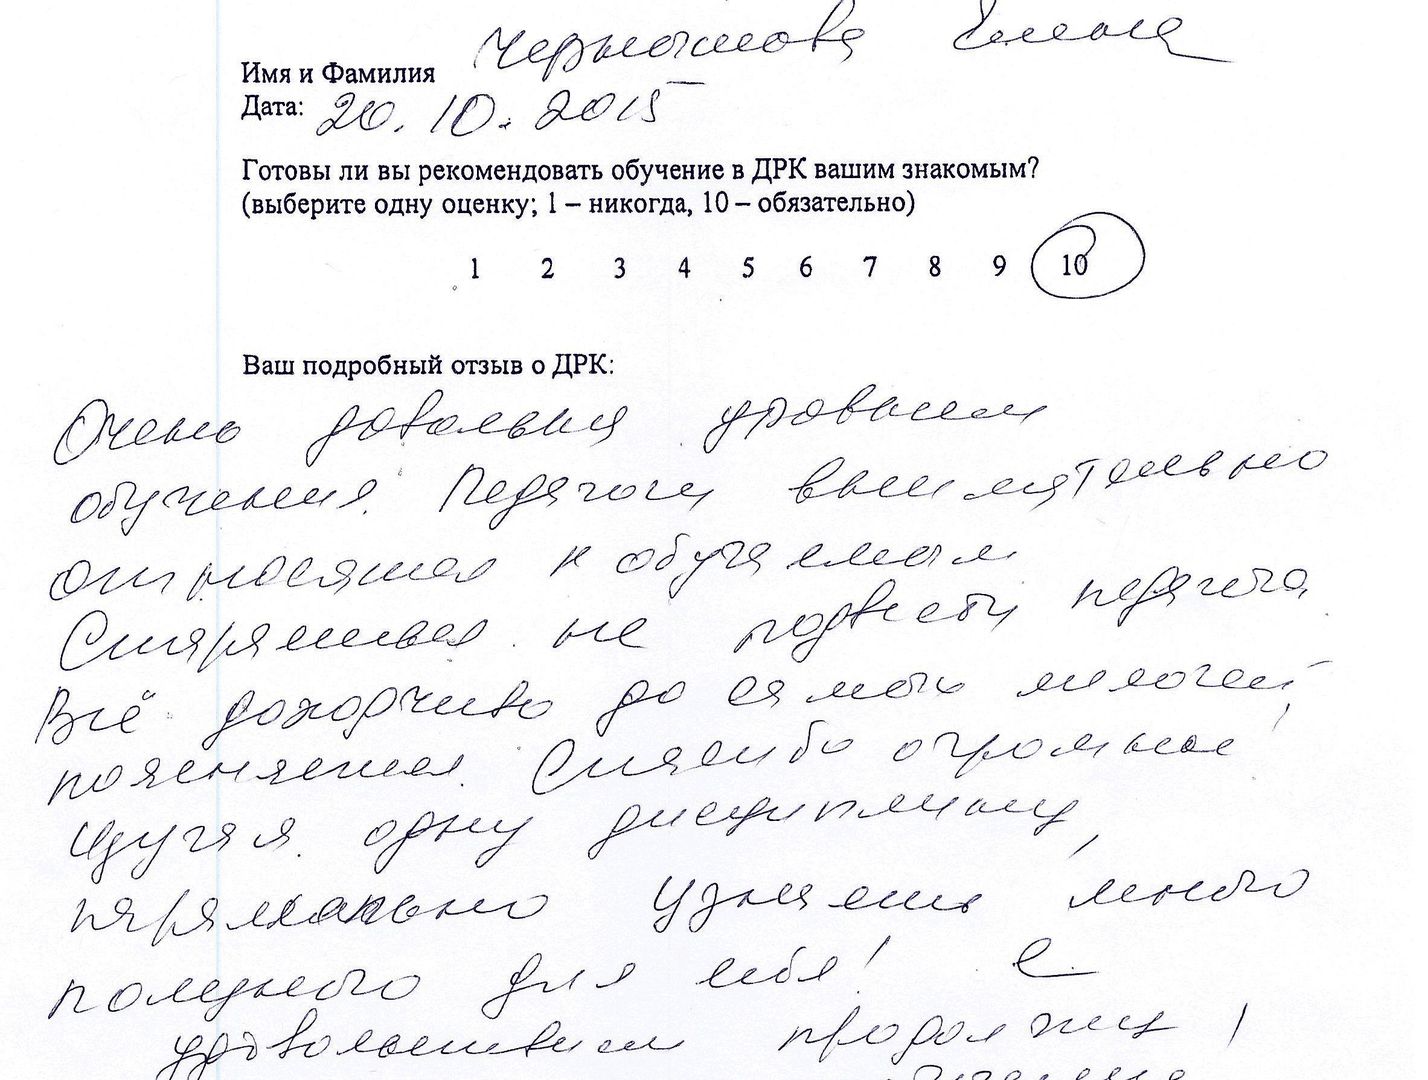 Имя и Фамилия Чернышова Елена
Дата: 20.10.2015
Готовы ли вы рекомендовать обучение в ДРК вашим знакомым?
(выберите одну оценку; 1 – никогда, 10 – обязательно)
1 2 3 4 5 6 7 8 9 10
Ваш подробный отзыв о ДРК:
Очень довольна уровнем
обучения. Педагоги внимательно
относятся к обучаемым
Стараешься не подвести педагога,
Всё доходчиво до самых мелочей,
поясняется. Спасибо огромное!
Изучая одну дисциплину,
параллельно узнаешь много
полезного для себя! С
удовольствием продолжу